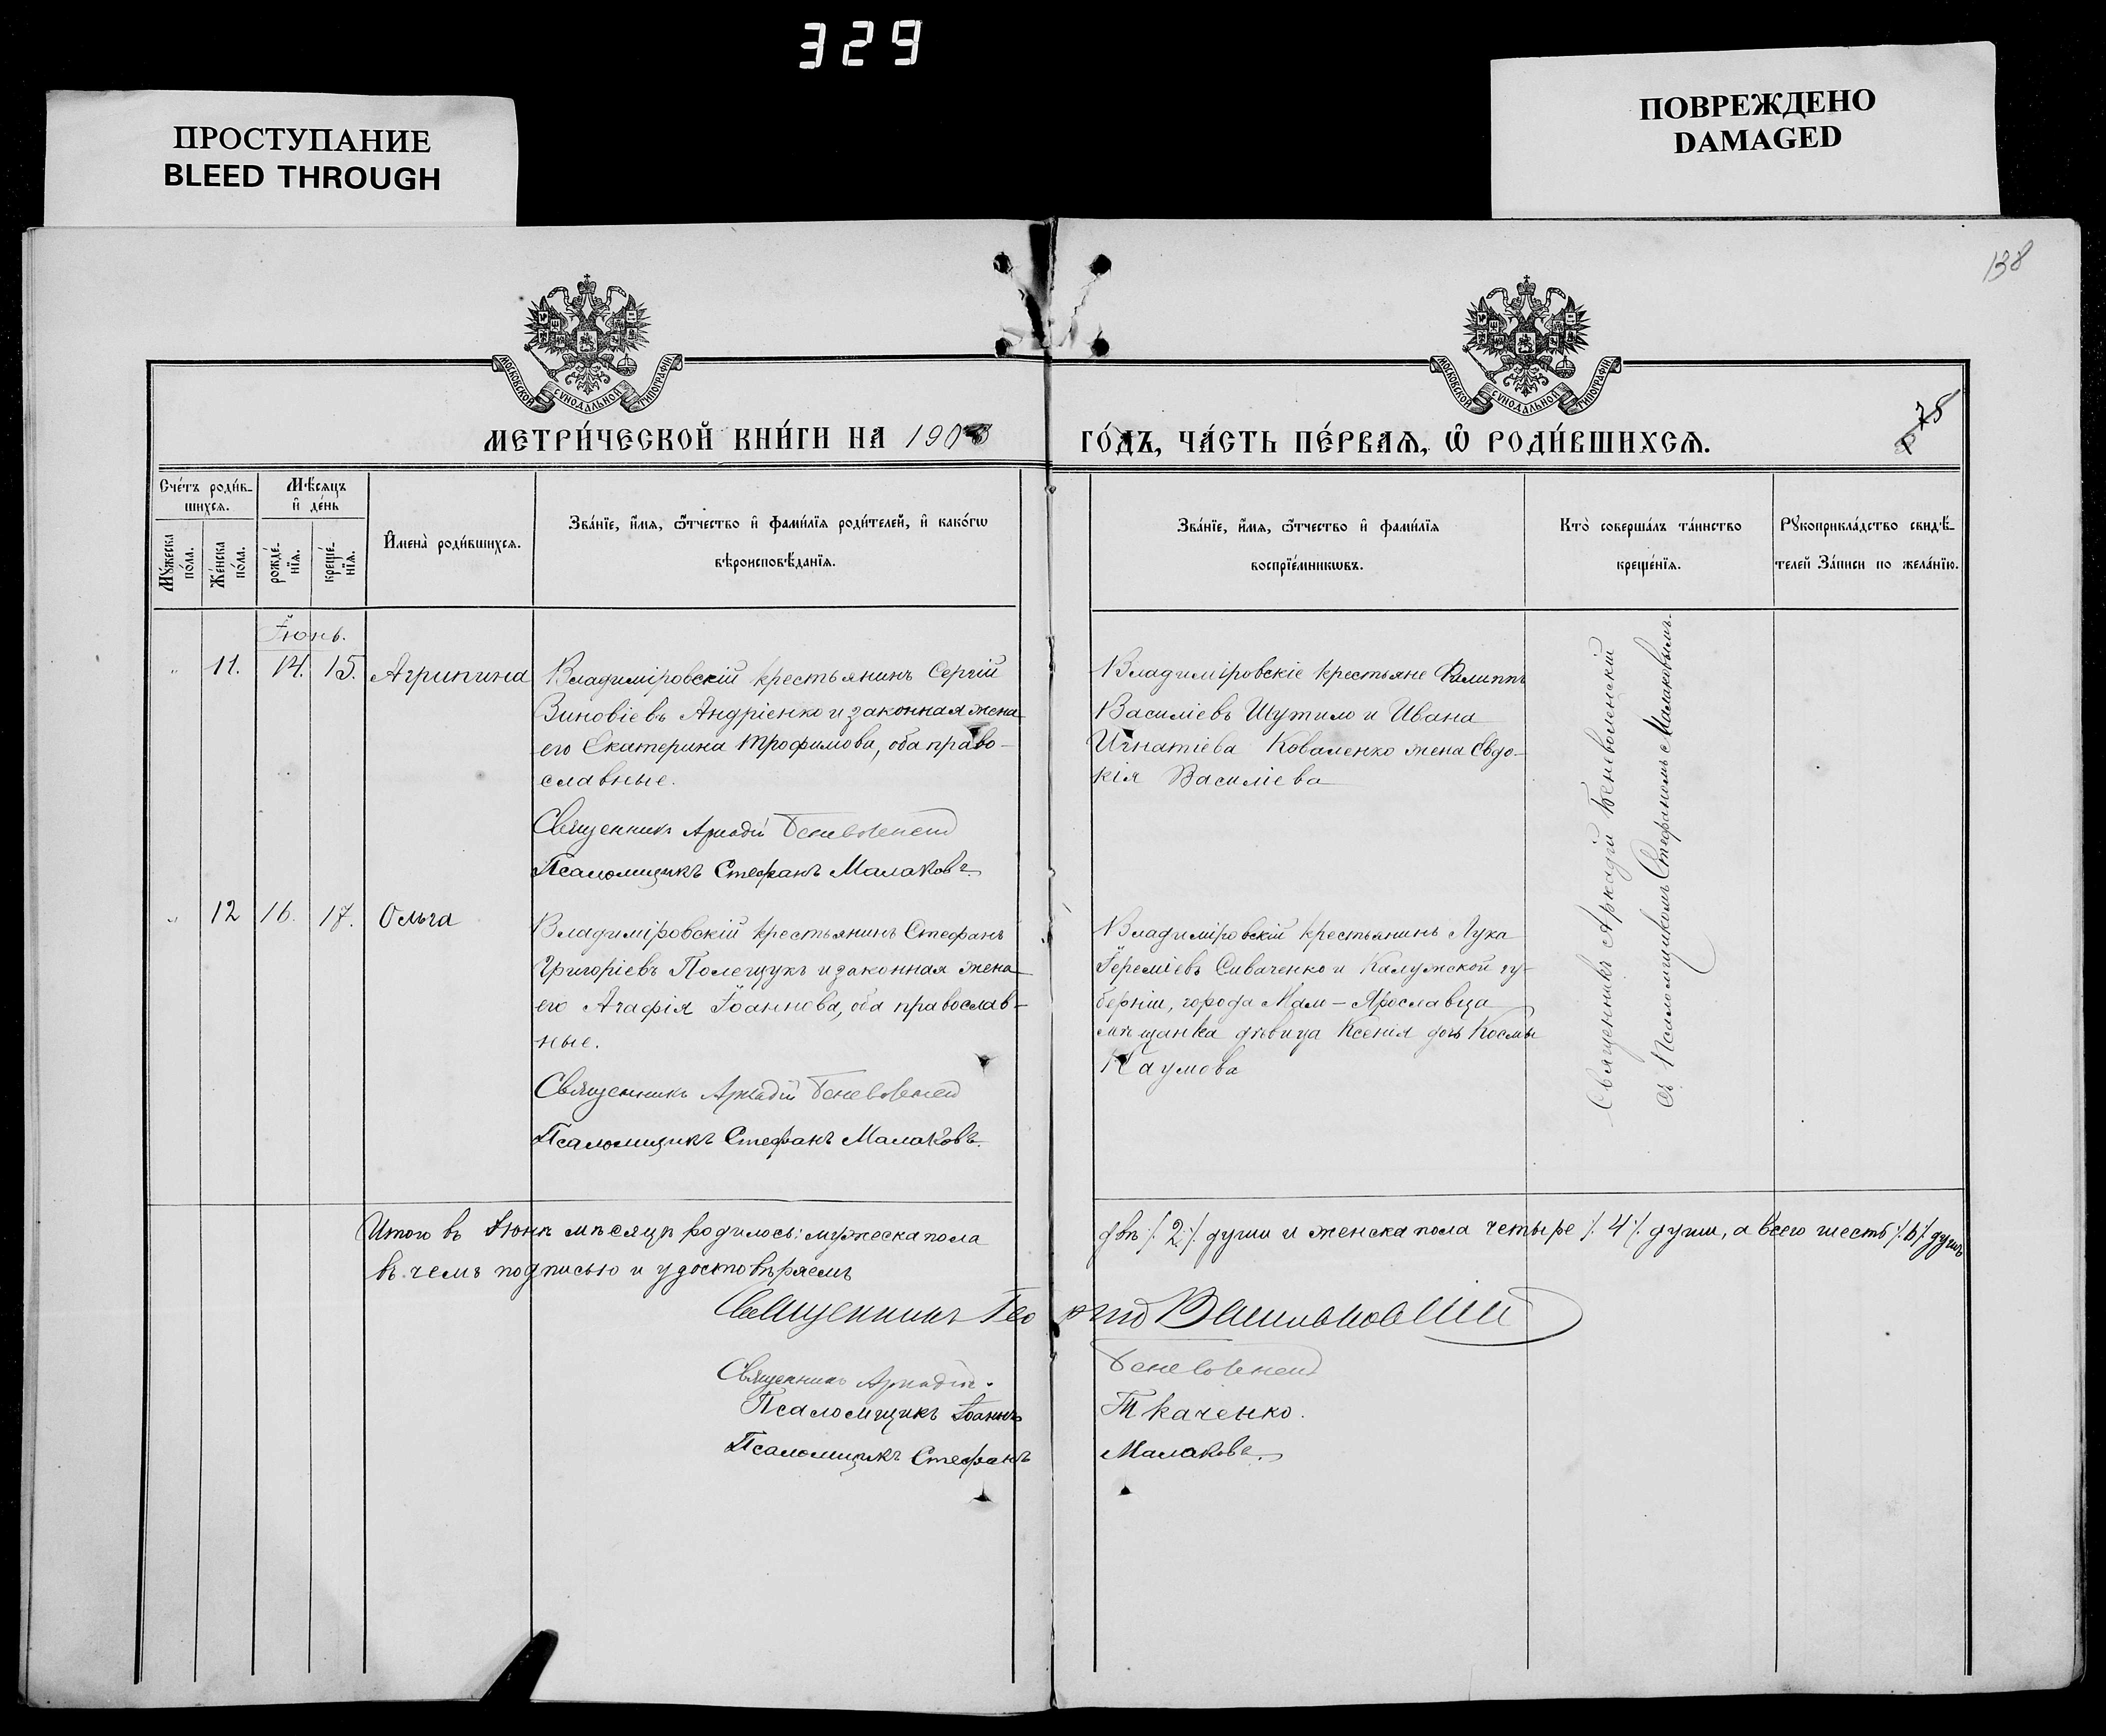 329
ПРОСТУПАНИЕ
BLEED THROUGH
ПОВРЕЖДЕНО
DAMAGED
138
МОСКОВСКОЙ СѴНОДАЛЬНОЙ ТИПОГРАФІИ
МОСКОВСКОЙ СѴНОДАЛЬНОЙ ТИПОГРАФІИ
МЕТРИ́ЧЕСКОЙ КНИ́ГИ НА 1903
ГО́ДЪ, ЧА́СТЬ ПЕ́РВАѦ, Ѽ РОДИ́ВШИХСѦ.
75
Сче́тъ роди́в-
шихсѧ.
Мѣ́сѧцъ
и҆ де́нь
Мꙋ́жеска
по́ла.
Же́нска
по́ла.
рожде́-
нїѧ.
креще́-
нїѧ.
И҆мена̀ роди́вшихсѧ.
Зва́нїе, и҆́мѧ, ѻ҆́тчество и҆ фами́лїѧ роди́телей, и҆ како́гѡ
вѣроисповѣ́данїѧ.
Зва́нїе, и҆́мѧ, ѻ҆́тчество и҆ фами́лїѧ
воспрїе́мникѡвъ.
Кто̀ соверша́лъ та́инство
креще́нїѧ.
Рꙋкоприкла́дство свидѣ́-
телей За́писи по жела́нїю.
Іюнь.
" 11. 14. 15. Агрипина
Владиміровскій крестьянинъ Сергій
Зиновіевъ Андріенко и законная жена
его Екатерина Трофимова, оба право-
славные.
Священникъ Аркадій Беневоленскій
Псаломщикъ Стефанъ Малаковъ.
Владиміровскіе крестьяне Филиппъ
Василіевъ Шутило и Ивана
Игнатіева Коваленко жена Евдо-
кія Василіева
Священникъ Аркадій Беневоленскій
съ Псаломщикомъ Стефаномъ Малаковымъ.
" 12 16. 17. Ольга
Владиміровскій крестьянинъ Стефанъ
Григоріевъ Полещукъ и законная жена
его Агафія Іоаннова, оба православ-
ные.
Священникъ Аркадій Беневоленскій
Псаломщикъ Стефанъ Малаковъ.
Владиміровскій крестьянинъ Лука
Іереміевъ Сиваченко и Калужской гу-
берніи, города Мал-Ярославца
мѣщанка дѣвица Ксенія дочь Космы
Наумова
Итого въ Іюнѣ мѣсяцѣ родилось: мужеска пола двѣ ٪ 2 ٪ души и женска пола четыре ٪ 4 ٪ души, а всего шесть ٪ 6 ٪ душъ
въ чемъ подписью и удостовѣряемъ
Священникъ
Священникъ Аркадій Беневоленскій
Псаломщикъ Іоаннъ Ткаченко.
Псаломщикъ Стефанъ Малаковъ.